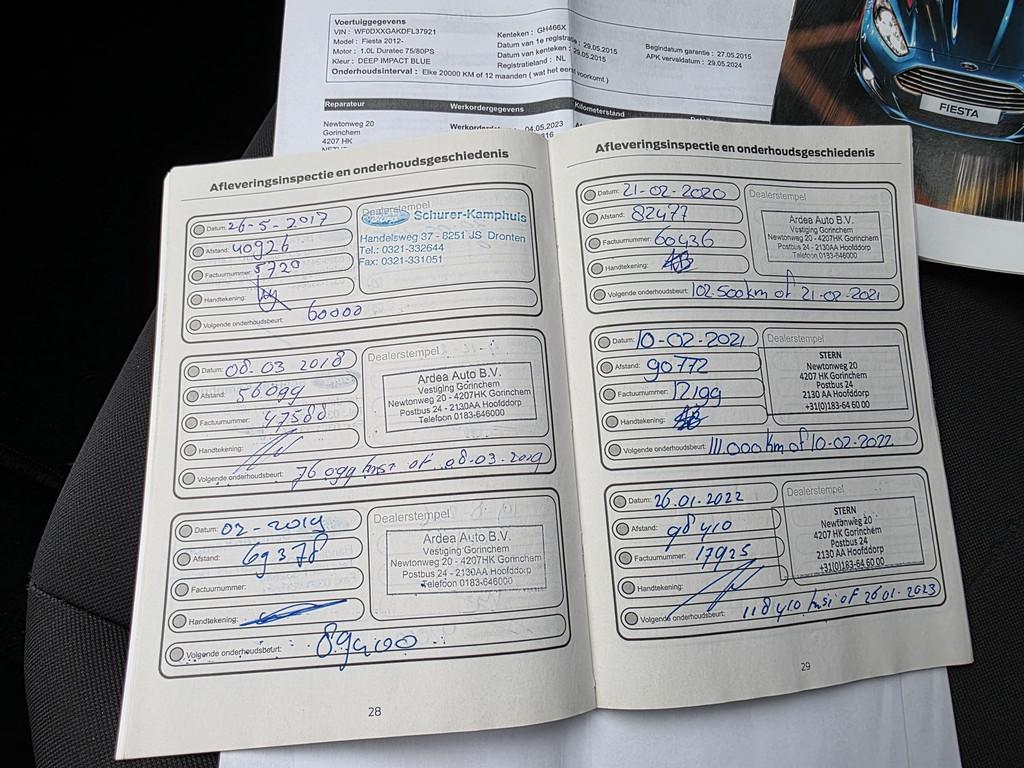 Voertuiggegevens
VIN : WF0DXXGAKDFL37921
Model : Fiesta 2012-
Motor : 1.0L Duratec 75/80PS
Kleur : DEEP IMPACT BLUE
Onderhoudsinterval : Elke 20000 KM of 12 maanden ( wat het eerst voorkomt )
Kenteken : GH466X
Datum van 1e registratie : 29.05.2015
Datum van kenteken : 29.05.2015
Registratieland : NL
Begindatum garantie : 27.05.2015
APK vervaldatum : 29.05.2024
Reparateur Werkordergegevens Kilometerstand
Newtonweg 20
Gorinchem
4207 HK
04.05.2023
FIESTA
Afleveringsinspectie en onderhoudsgeschiedenis
Datum: 26-5-2017
Afstand: 40926
Factuurnummer: 5729
Handtekening:
Volgende onderhoudsbeurt: 60000
Dealerstempel
Schurer-Kamphuis
Handelsweg 37 - 8251 JS Dronten
Tel.: 0321-332644
Fax: 0321-331051
Datum: 08.03 2018
Afstand: 56099
Factuurnummer: 47588
Handtekening:
Volgende onderhoudsbeurt: 76099 of 08-03-2019
Dealerstempel
Ardea Auto B.V.
Vestiging Gorinchem
Newtonweg 20 - 4207HK Gorinchem
Postbus 24 - 2130AA Hoofddorp
Telefoon 0183-646000
Datum: 02-2019
Afstand: 69378
Factuurnummer:
Handtekening:
Volgende onderhoudsbeurt:
Dealerstempel
Ardea Auto B.V.
Vestiging Gorinchem
Newtonweg 20 - 4207HK Gorinchem
Postbus 24 - 2130AA Hoofddorp
Telefoon 0183-646000
28
Afleveringsinspectie en onderhoudsgeschiedenis
Datum: 21-02-2020
Afstand: 82477
Factuurnummer: 60436
Handtekening:
Volgende onderhoudsbeurt: 102.500km of 21-02-2021
Dealerstempel
Ardea Auto B.V.
Vestiging Gorinchem
Newtonweg 20 - 4207HK Gorinchem
Postbus 24 - 2130AA Hoofddorp
Telefoon 0183-646000
Datum: 10-02-2021
Afstand: 90772
Factuurnummer: 12199
Handtekening:
Volgende onderhoudsbeurt: 111.000km of 10-02-2022
Dealerstempel
STERN
Newtonweg 20
4207 HK Gorinchem
Postbus 24
2130 AA Hoofddorp
+31(0)183-64 60 00
Datum: 26.01.2022
Afstand: 98410
Factuurnummer: 17925
Handtekening:
Volgende onderhoudsbeurt: 118410 of 26.01.2023
Dealerstempel
STERN
Newtonweg 20
4207 HK Gorinchem
Postbus 24
2130 AA Hoofddorp
+31(0)183-64 60 00
29